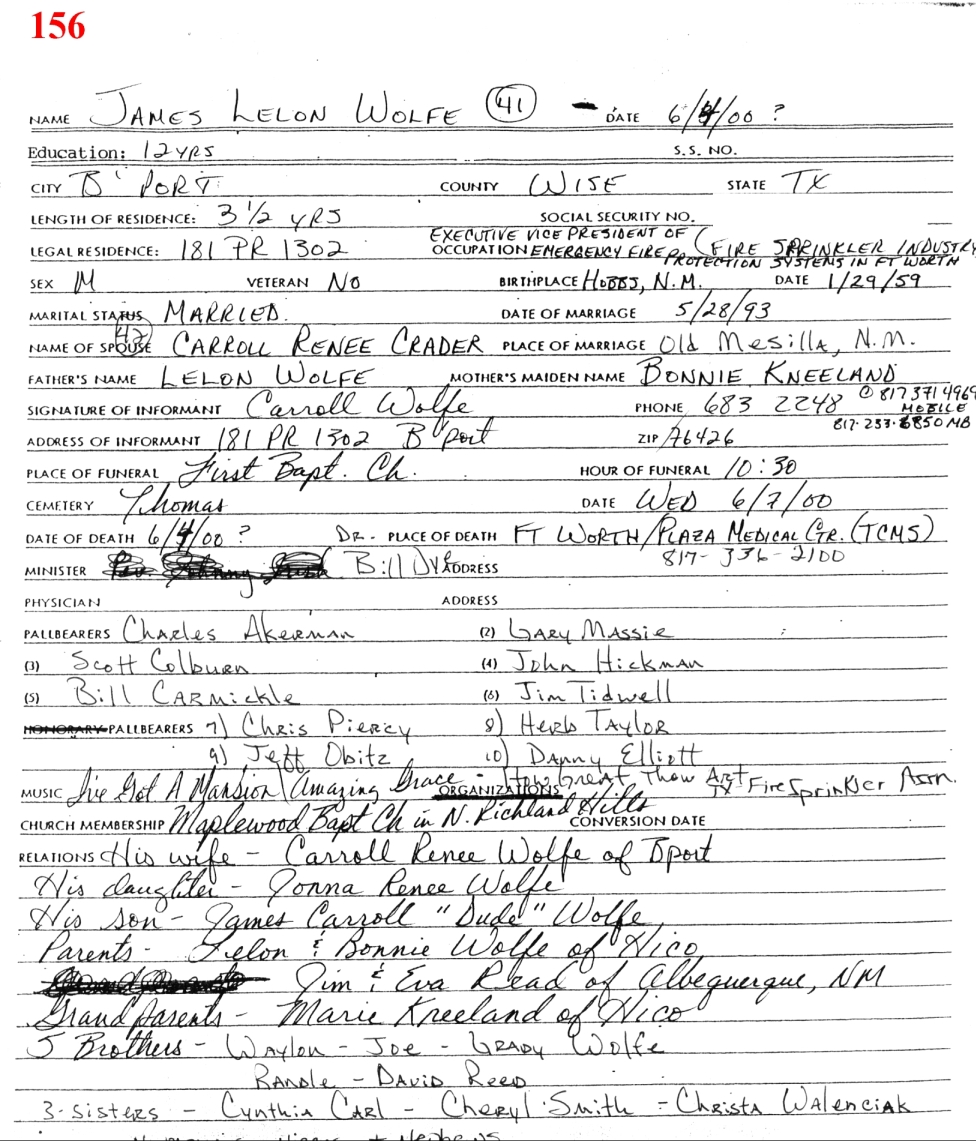 156
NAME JAMES LELON WOLFE 41 - DATE 6/4/00 ?
Education: 12 YRS S.S. NO.
CITY B'PORT COUNTY WISE STATE TX
LENGTH OF RESIDENCE: 3 1/2 YRS SOCIAL SECURITY NO.
EXECUTIVE VICE PRESIDENT OF
LEGAL RESIDENCE: 181 PR 1302 OCCUPATION EMERGENCY FIRE PROTECTION SYSTEMS IN FT WORTH (FIRE SPRINKLER INDUSTRY
SEX M VETERAN NO BIRTHPLACE HOBBS, N.M. DATE 1/29/59
MARITAL STATUS MARRIED. DATE OF MARRIAGE 5/28/93
NAME OF SPOUSE CARROLL RENEE CRADER PLACE OF MARRIAGE Old Mesilla, N.M.
FATHER'S NAME LELON WOLFE MOTHER'S MAIDEN NAME BONNIE KNEELAND
SIGNATURE OF INFORMANT Carroll Wolfe PHONE 683 2248 817 371 4969 MOBILE
ADDRESS OF INFORMANT 181 PR 1302 B'port ZIP 76426 817-233-6850 MB
PLACE OF FUNERAL First Bapt. Ch. HOUR OF FUNERAL 10:30
CEMETERY Thomas DATE WED 6/7/00
DATE OF DEATH 6/4/00 ? DR. - PLACE OF DEATH FT WORTH/PLAZA MEDICAL CTR. (TCMS)
817-336-2100
MINISTER Bill ADDRESS
PHYSICIAN ADDRESS
PALLBEARERS Charles Akerman (2) GARY MASSIE
(3) Scott Colburn (4) John Hickman
(5) Bill CARMickle (6) Jim Tidwell
HONORARY PALLBEARERS 7) Chris Piercy 8) Herb Taylor
9) Jeff Obitz 10) Danny Elliott
MUSIC I've Got A Mansion / Amazing Grace - How Great Thow Art ORGANIZATIONS TX Fire Sprinkler Assn.
CHURCH MEMBERSHIP Maplewood Bapt Ch in N. Richland Hills CONVERSION DATE
RELATIONS His wife - Carroll Renee Wolfe of Bport
His daughter - Jonna Renee Wolfe
His son - James Carroll "Dude" Wolfe
Parents - Lelon & Bonnie Wolfe of Hico
Jim & Eva Read of Albequerque, NM
Grandparents - Marie Kneeland of Hico
5 Brothers - Waylon - Joe - GRADY Wolfe
RANDLE - DAVID REED
3-sisters - Cynthia CARL - Cheryl Smith - Christa Walenciak